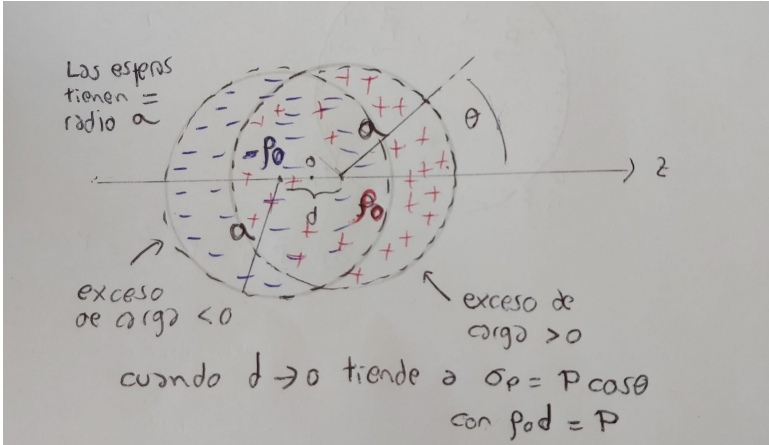 Las esferas
tienen =
radio a
-ρ0
o
a
θ
z
d
ρ0
a
exceso
de carga <0
exceso de
carga >0
cuando d → 0 tiende a σp = P cosθ
con ρ0d = P